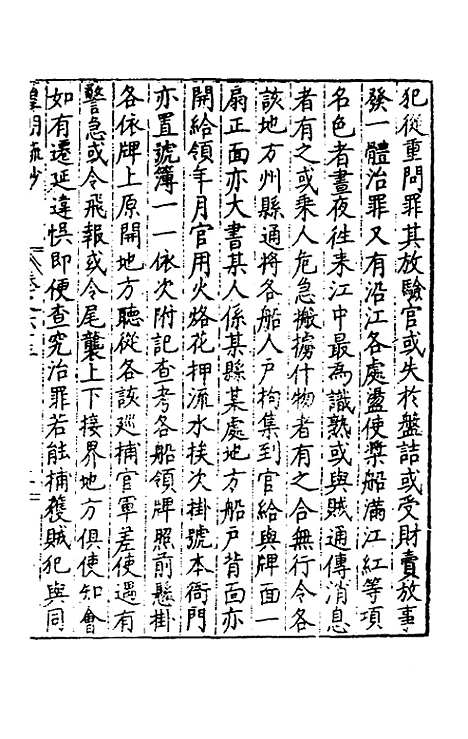 犯從重問罪其放驗官或失於盤詰或受財賣放事
發一體治罪又有沿江各處盪使槳船滿江紅等項
名色者晝夜往来江中最為識熟或與賊通傳消息
者有之或乗人危急搬擄什物者有之合無行令各
該地方州縣通將各船人戶拘集到官給與牌面一
扇正面亦大書某人係某縣某處地方船戶背面亦
開給領年月官用火烙花押流水挨次掛號本衙門
亦置號簿一一依次附記查考各船領牌照前懸掛
各依牌上原開地方聽從各該廵捕官軍差使遇有
警急或令飛報或令尾襲上下接界地方俱使知會
如有遷延違悞即便查究治罪若能捕獲賊犯與同
皇明疏抄